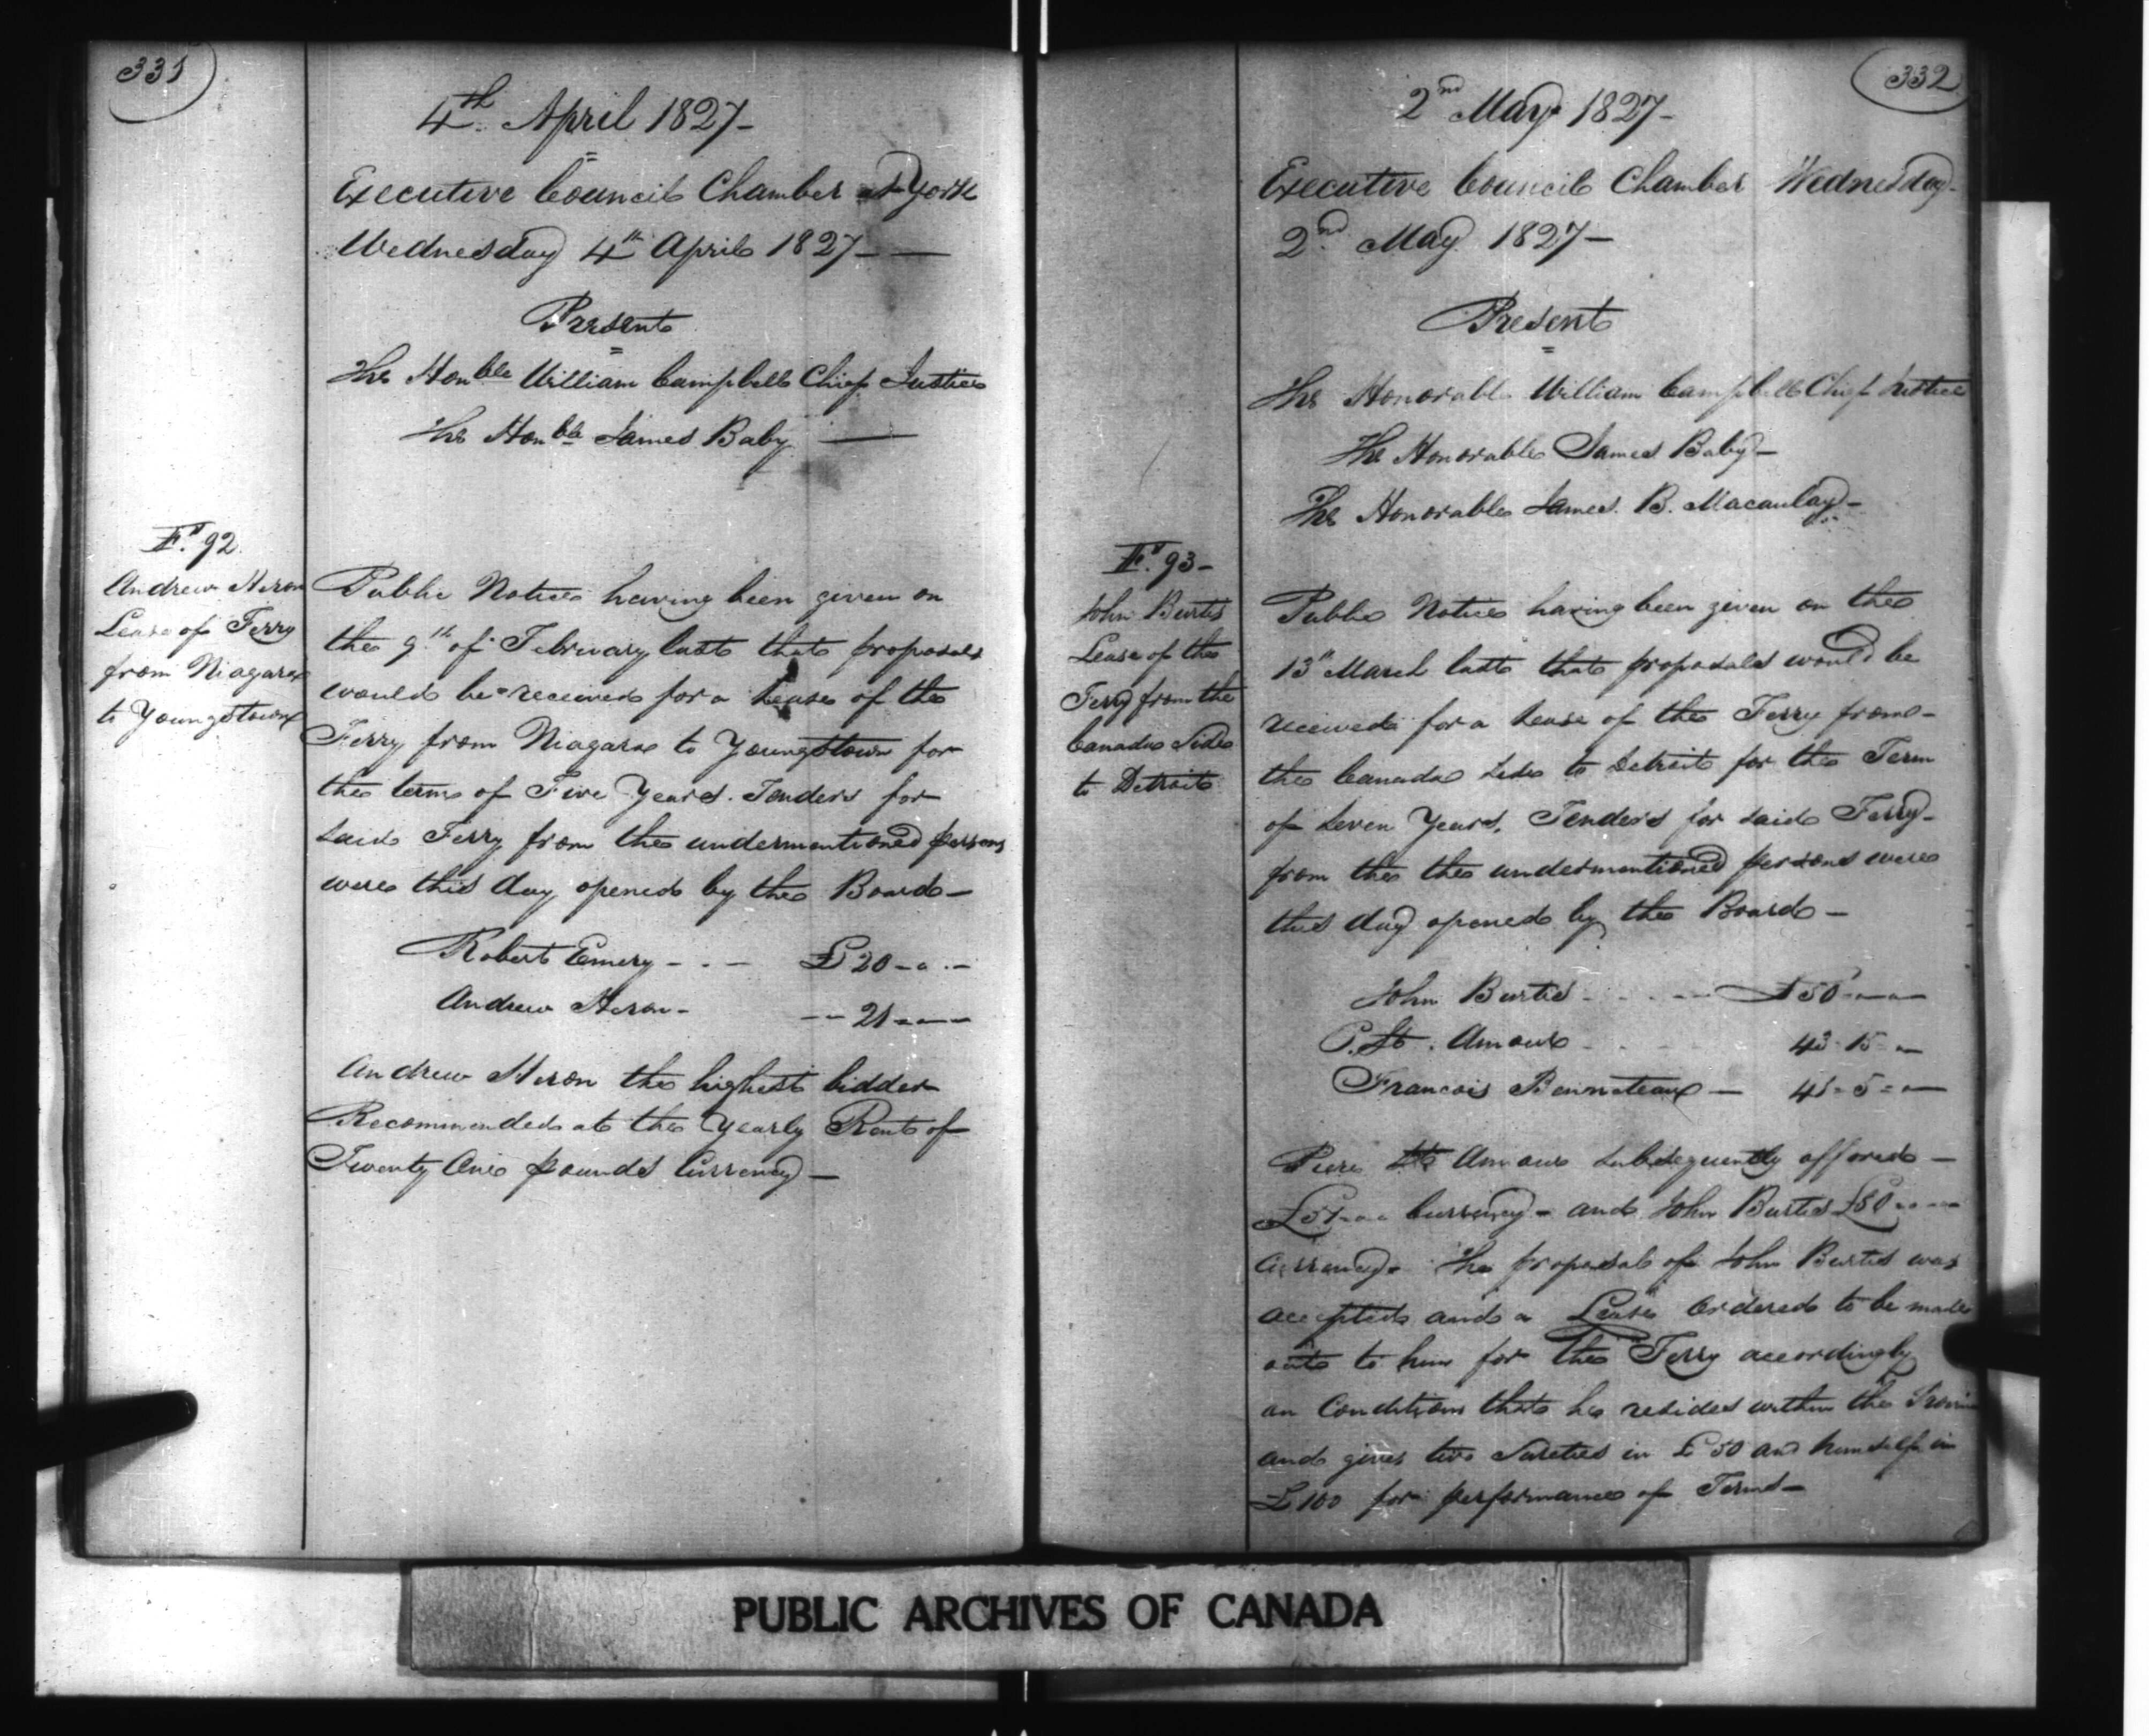 331
4th April 1827-
Executive Council Chamber at York
Wednesday 4th April 1827 -
Present
The Honble William Campbell Chief Justice
The Honble James Baby
F. 92.
Andrew Heron
Lease of Ferry
from Niagara
to Youngstown
Public Notice having been given on
the 9th of February last that proposals
would be received for a Lease of the
Ferry from Niagara to Youngstown for
the term of Five Years. Tenders for
said Ferry from the undermentioned persons
were this day opened by the Board-
Robert Emery - - - £20 - - -
Andrew Heron - -- 21 - - -
Andrew Heron the highest bidder
Recommended at the Yearly Rent of
Twenty One pounds Currency-
332
2nd May 1827-
Executive Council Chamber Wednesday-
2nd May 1827-
Present
The Honorable William Campbell Chief Justice
The Honorable James Baby-
The Honorable James B. Macaulay-
F. 93-
John Burtis
Lease of the
Ferry from the
Canada Side
to Detroit
Public Notice having been given on the
13th March last that proposals would be
received for a Lease of the Ferry from-
the Canada Side to Detroit for the Term
of Seven Years, Tenders for said Ferry-
from the the undermentioned persons were
this day opened by the Board-
John Burtis - - - - £50 - - -
P. St. Amour - - - 43-15- -
Francois - 45-5- -
St. Amour subsequently offered-
£51 - - - Currency- and John Burtis £80 - - -
Currency- The proposal of John Burtis was
accepted and a Lease Ordered to be made
out to him for the Ferry accordingly
on Condition that he resides within the Province
and gives two Sureties in £50 and himself in
£100 for performance of Terms-
PUBLIC ARCHIVES OF CANADA